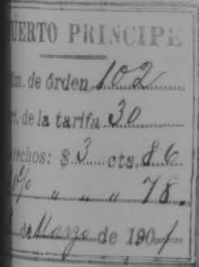 PUERTO PRINCIPE
Núm. de órden 102
de la tarifa 30
rechos: $ 3 cts. 86
% " " " 78.
de Marzo de 190